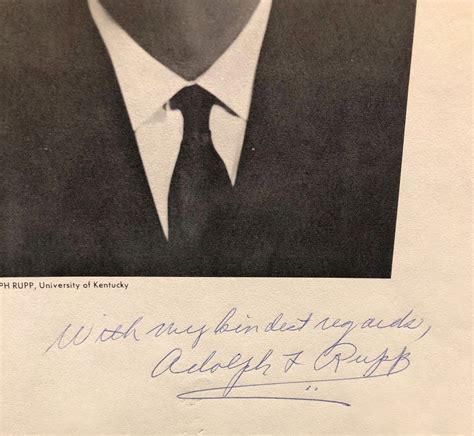 PH RUPP, University of Kentucky
With my kindest regards,
Adolph F Rupp